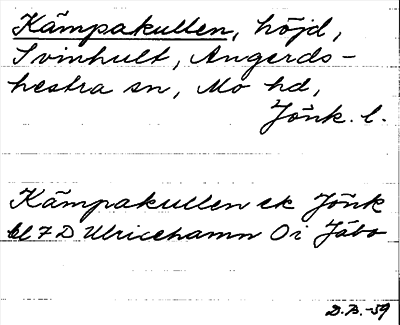 Kämpakullen, höjd,
Svinhult, Angerds-
hestra sn, Mo hd,
Jönk. l.
Kämpakullen ek Jönk
bl 7 D Ulricehamn Öi Jäbo
D.B.-59